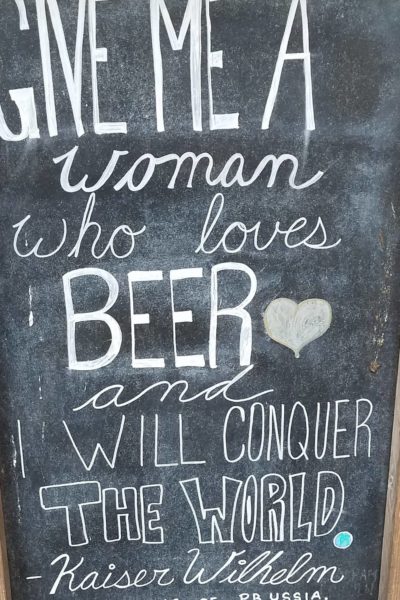 GIVE ME A
woman
who loves
BEER
and
I WILL CONQUER
THE WORLD.
- Kaiser Wilhelm
OF PRUSSIA.